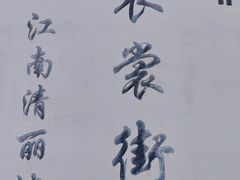 裳街
江南清丽